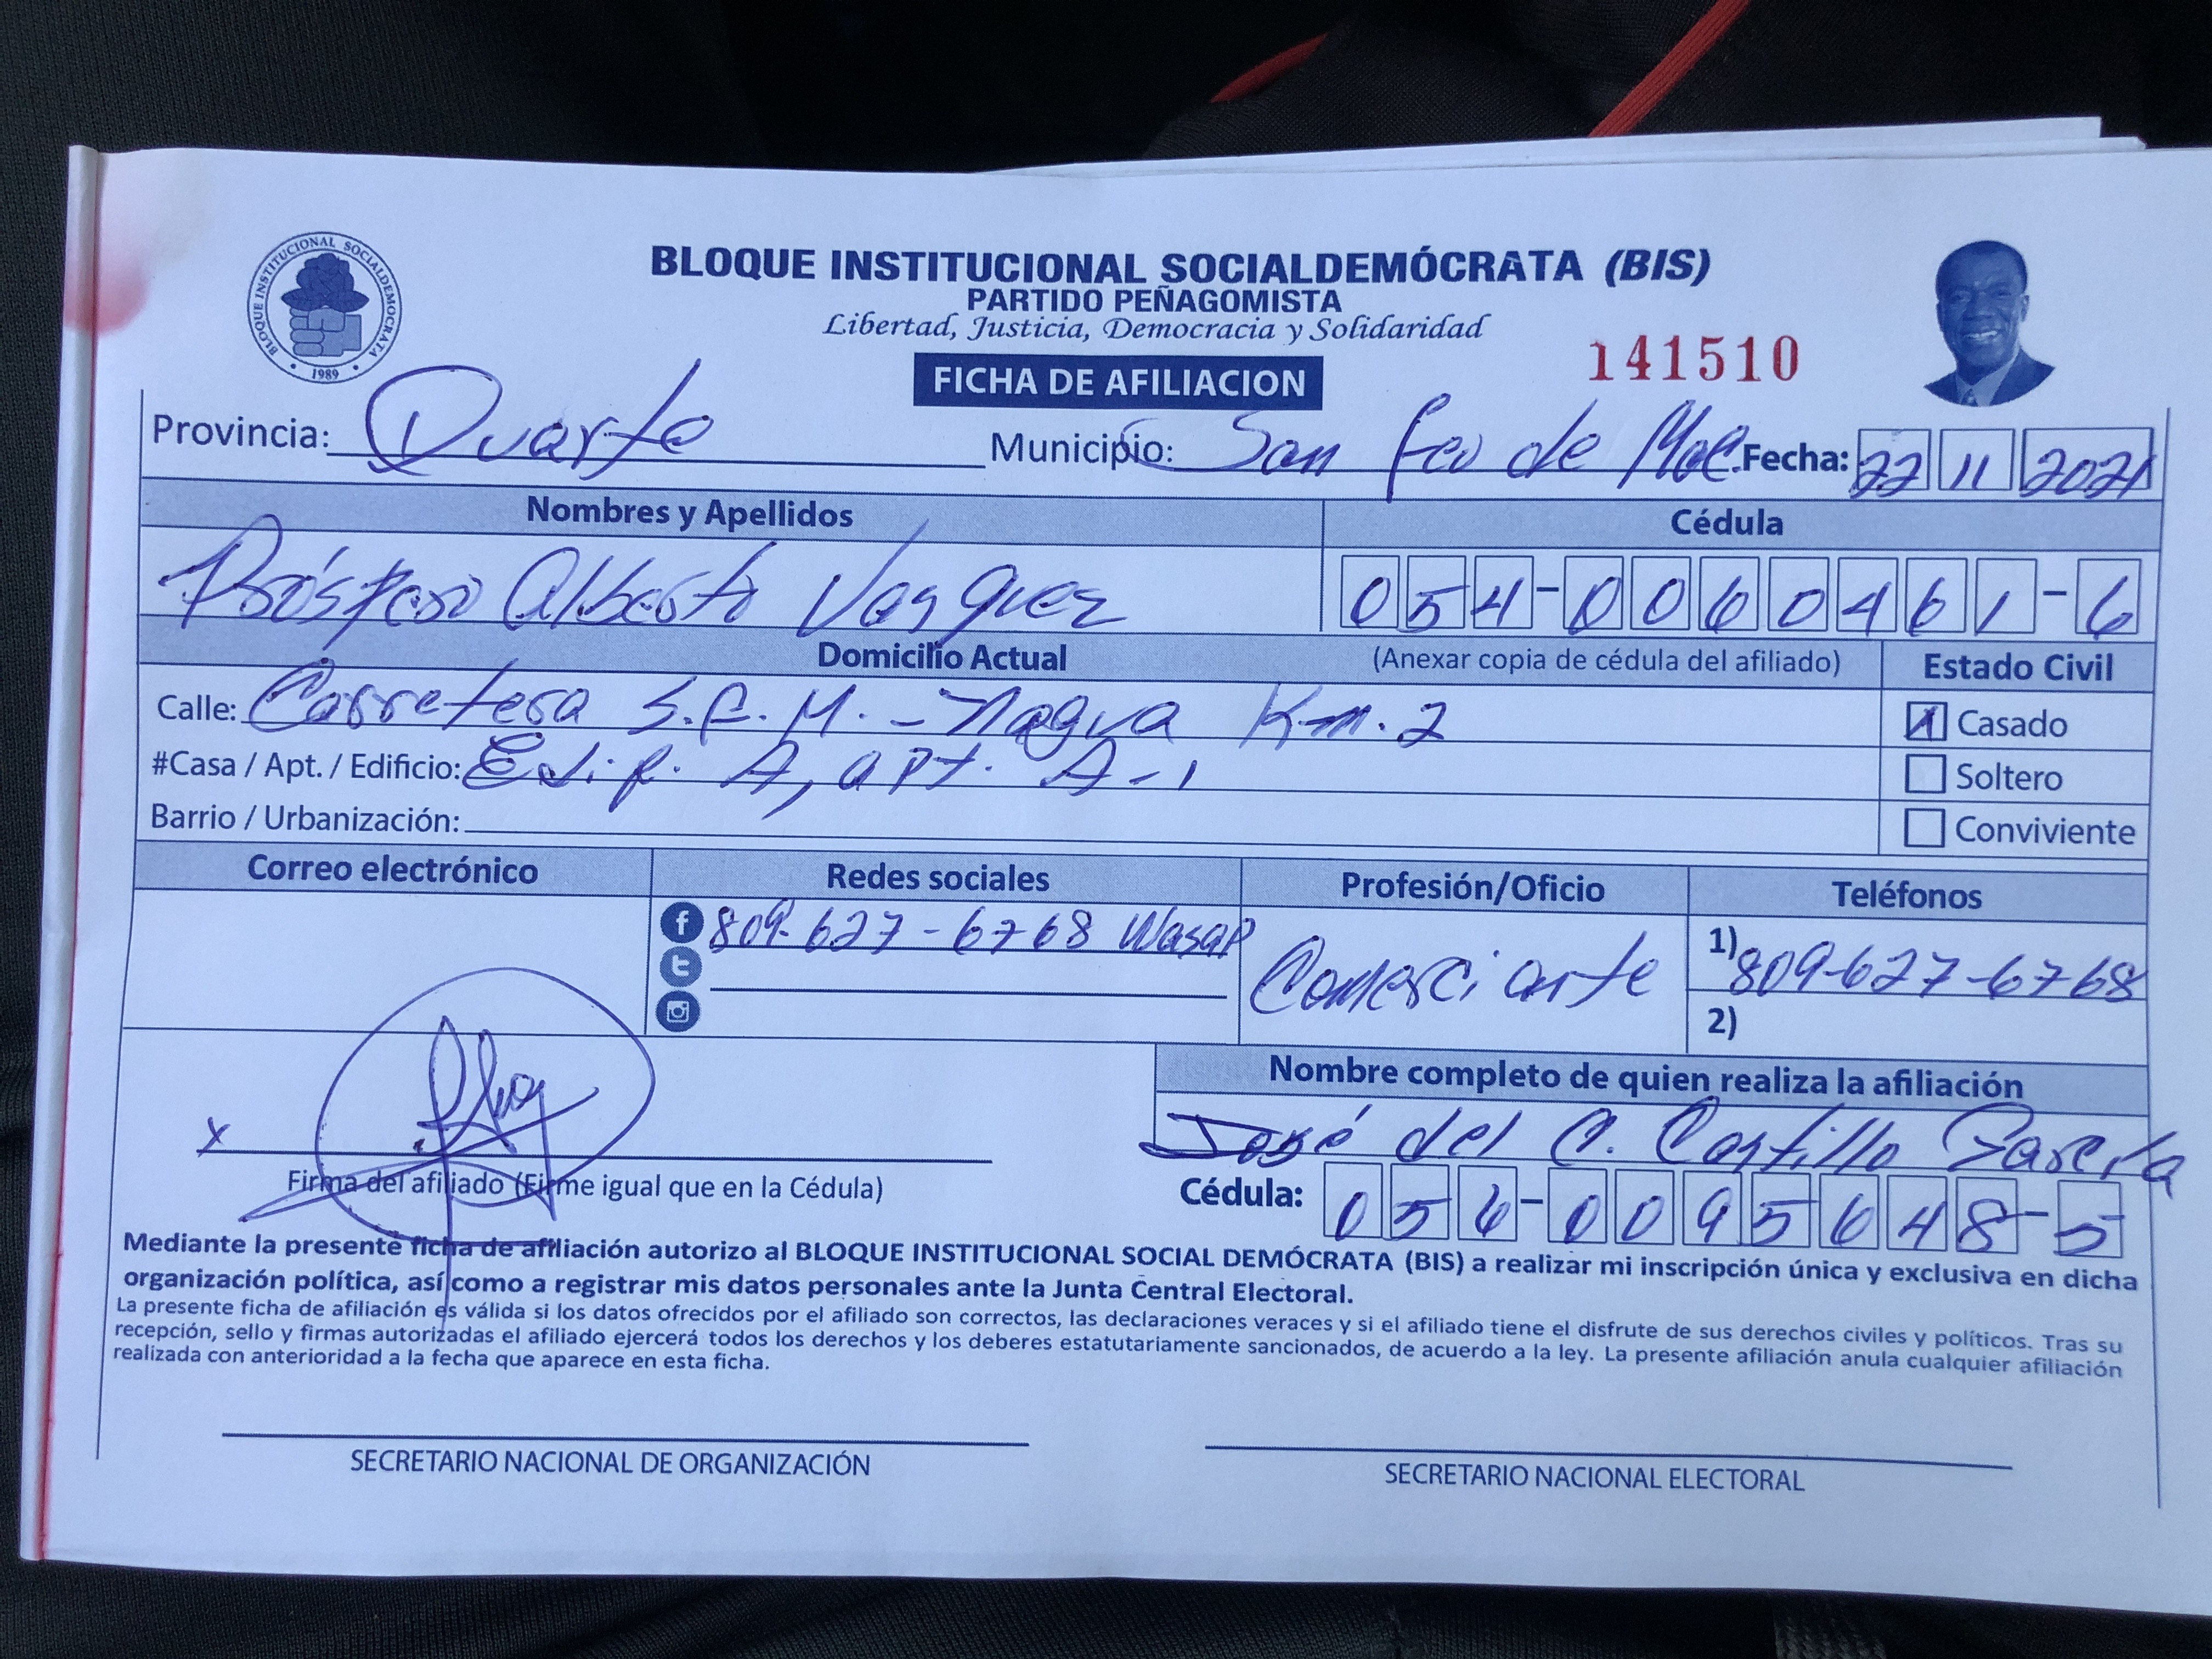 BLOQUE INSTITUCIONAL SOCIALDEMOCRATA
1989
BLOQUE INSTITUCIONAL SOCIALDEMÓCRATA (BIS)
PARTIDO PEÑAGOMISTA
Libertad, Justicia, Democracia y Solidaridad
141510
FICHA DE AFILIACION
Provincia: Duarte Municipio: San Fco de Mac. Fecha: 22 11 2021
Nombres y Apellidos Cédula
Próspero Alberto Vasquez 054-0060461-6
Domicilio Actual (Anexar copia de cédula del afiliado) Estado Civil
Calle: Carretera S.F.M. - Nagua Km. 2 Casado
#Casa / Apt. / Edificio: Edif. A, apt. A-1 Soltero
Barrio / Urbanización: Conviviente
Correo electrónico Redes sociales Profesión/Oficio Teléfonos
809-627-6768 Wasap Comerciante 1) 809-627-6768
2)
Nombre completo de quien realiza la afiliación
x José del C. Castillo García
Firma del afiliado (Firme igual que en la Cédula) Cédula: 056-0095648-5
Mediante la presente ficha de afiliación autorizo al BLOQUE INSTITUCIONAL SOCIAL DEMÓCRATA (BIS) a realizar mi inscripción única y exclusiva en dicha
organización política, así como a registrar mis datos personales ante la Junta Central Electoral.
La presente ficha de afiliación es válida si los datos ofrecidos por el afiliado son correctos, las declaraciones veraces y si el afiliado tiene el disfrute de sus derechos civiles y políticos. Tras su
recepción, sello y firmas autorizadas el afiliado ejercerá todos los derechos y los deberes estatutariamente sancionados, de acuerdo a la ley. La presente afiliación anula cualquier afiliación
realizada con anterioridad a la fecha que aparece en esta ficha.
SECRETARIO NACIONAL DE ORGANIZACIÓN SECRETARIO NACIONAL ELECTORAL